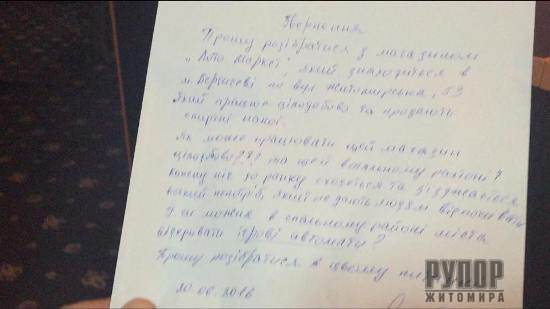 Звернення
Прошу розібратися з магазином
„Лото Маркет", який знаходиться в
м. Бердичеві по вул Житомирська, 53
Який працює цілодобово та продають
спиртні напої.
Як може працювати цей магазин
цілодобово??? та ще й в спальному районі?
кожну ніч до ранку сходяться та з'їзджаються
який не дають людям відпочивати
можна в спальному районі міста
відкривати ігрові автомати?
Прошу розібратися в цьому
РУПОР
ЖИТОМИРА